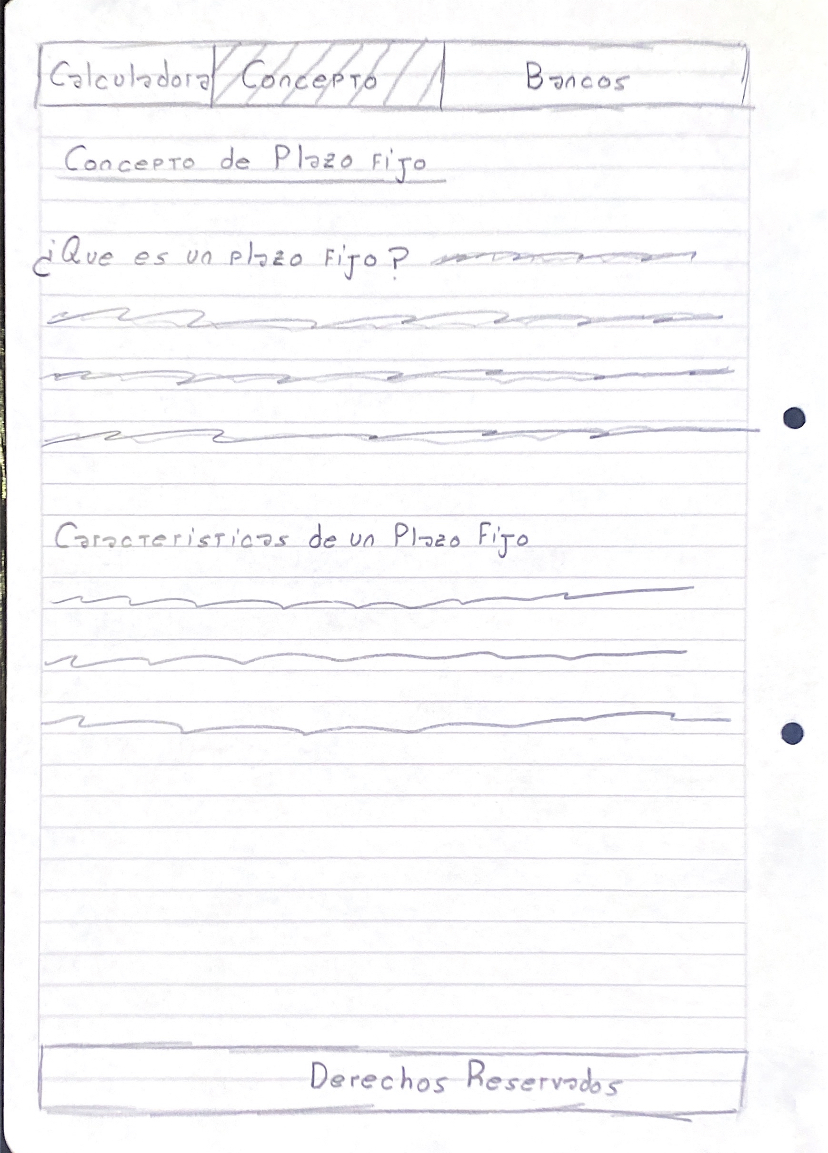 Calculadora Concepto Bancos
Concepto de Plazo Fijo
¿Que es un plazo Fijo?
Caracteristicas de un Plazo Fijo
Derechos Reservados